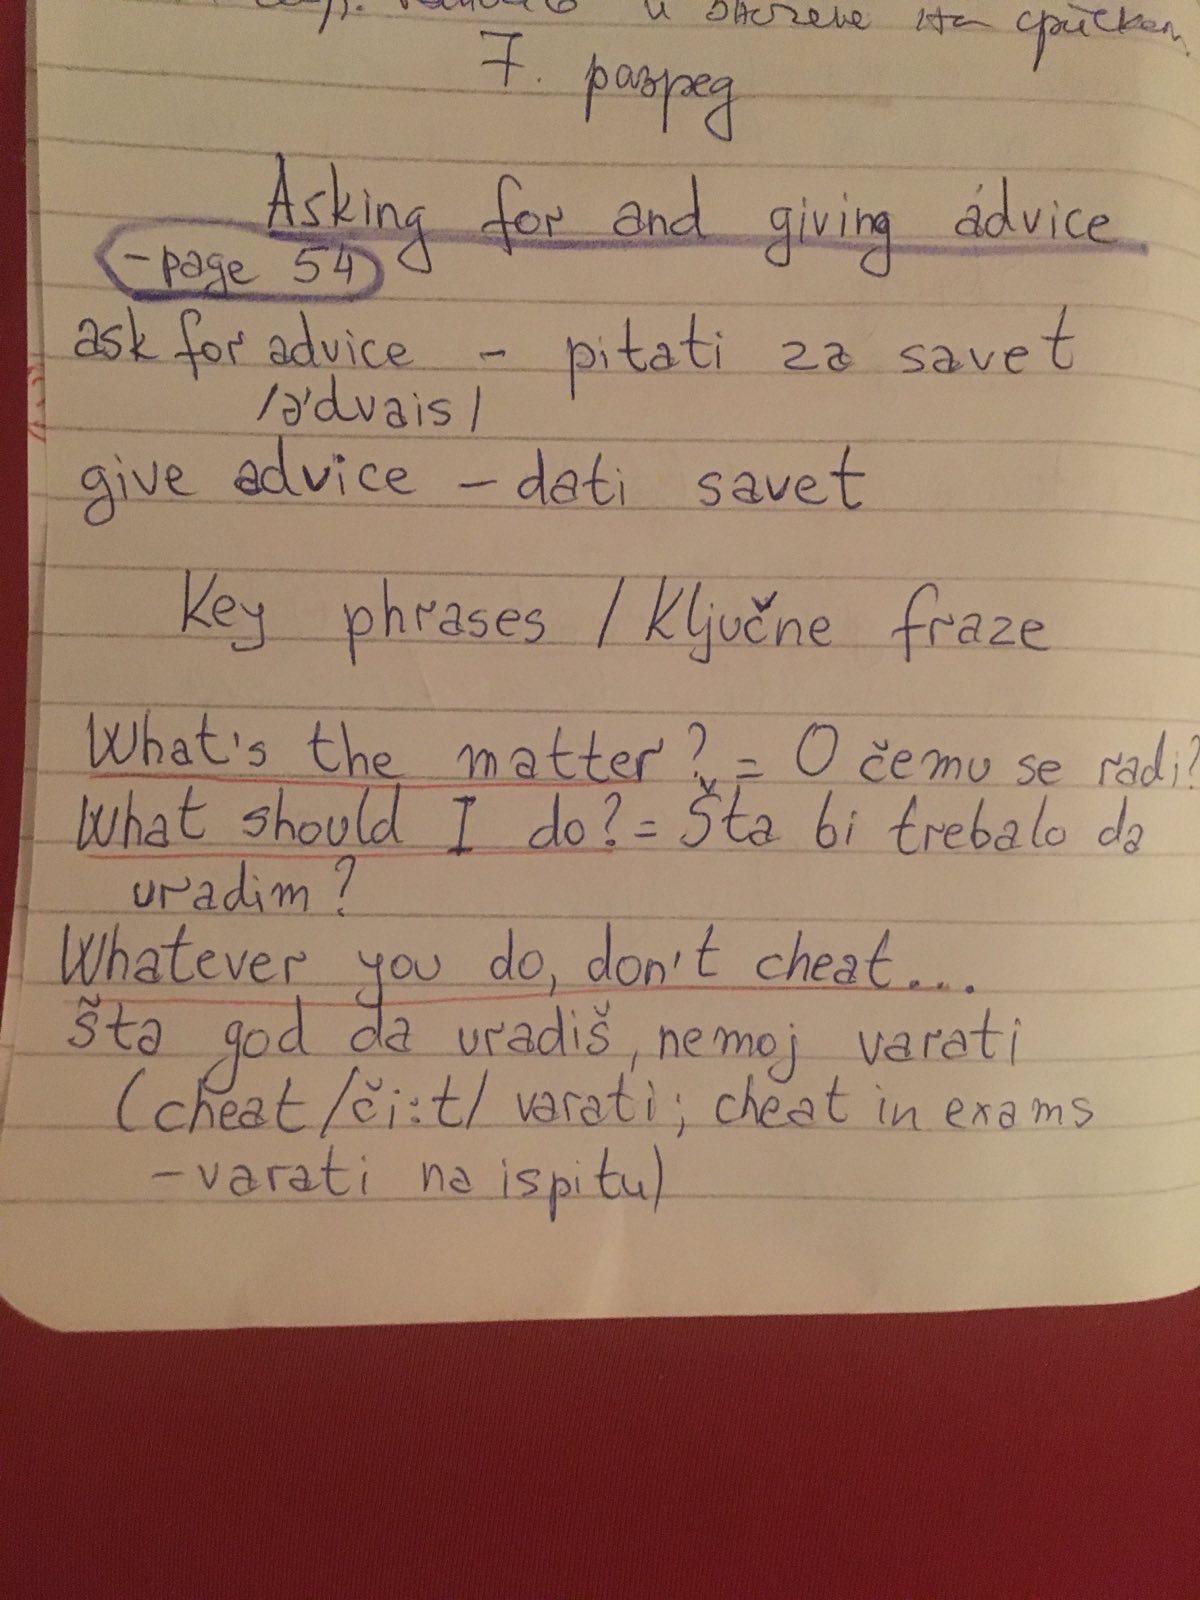 и                на српском
7. разред
Asking for and giving advice
-page 54
ask for advice - pitati za savet
/ə'dvais/
give advice - dati savet
Key phrases / Ključne fraze
What's the matter? = O čemu se radi?
What should I do? = Šta bi trebalo da
uradim?
Whatever you do, don't cheat...
Šta god da uradiš, nemoj varati
(cheat /či:t/ varati; cheat in exams
-varati na ispitu)